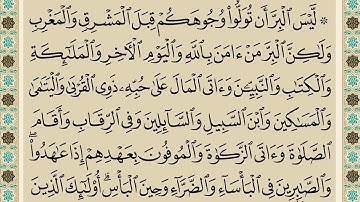 ۞ لَّيْسَ ٱلْبِرَّ أَن تُوَلُّوا۟ وُجُوهَكُمْ قِبَلَ ٱلْمَشْرِقِ وَٱلْمَغْرِبِ
وَلَٰكِنَّ ٱلْبِرَّ مَنْ ءَامَنَ بِٱللَّهِ وَٱلْيَوْمِ ٱلْءَاخِرِ وَٱلْمَلَٰٓئِكَةِ
وَٱلْكِتَٰبِ وَٱلنَّبِيِّۦنَ وَءَاتَى ٱلْمَالَ عَلَىٰ حُبِّهِۦ ذَوِى ٱلْقُرْبَىٰ وَٱلْيَتَٰمَىٰ
وَٱلْمَسَٰكِينَ وَٱبْنَ ٱلسَّبِيلِ وَٱلسَّآئِلِينَ وَفِى ٱلرِّقَابِ وَأَقَامَ
ٱلصَّلَوٰةَ وَءَاتَى ٱلزَّكَوٰةَ وَٱلْمُوفُونَ بِعَهْدِهِمْ إِذَا عَٰهَدُوا۟ ۖ
وَٱلصَّٰبِرِينَ فِى ٱلْبَأْسَآءِ وَٱلضَّرَّآءِ وَحِينَ ٱلْبَأْسِ ۗ أُو۟لَٰٓئِكَ ٱلَّذِينَ